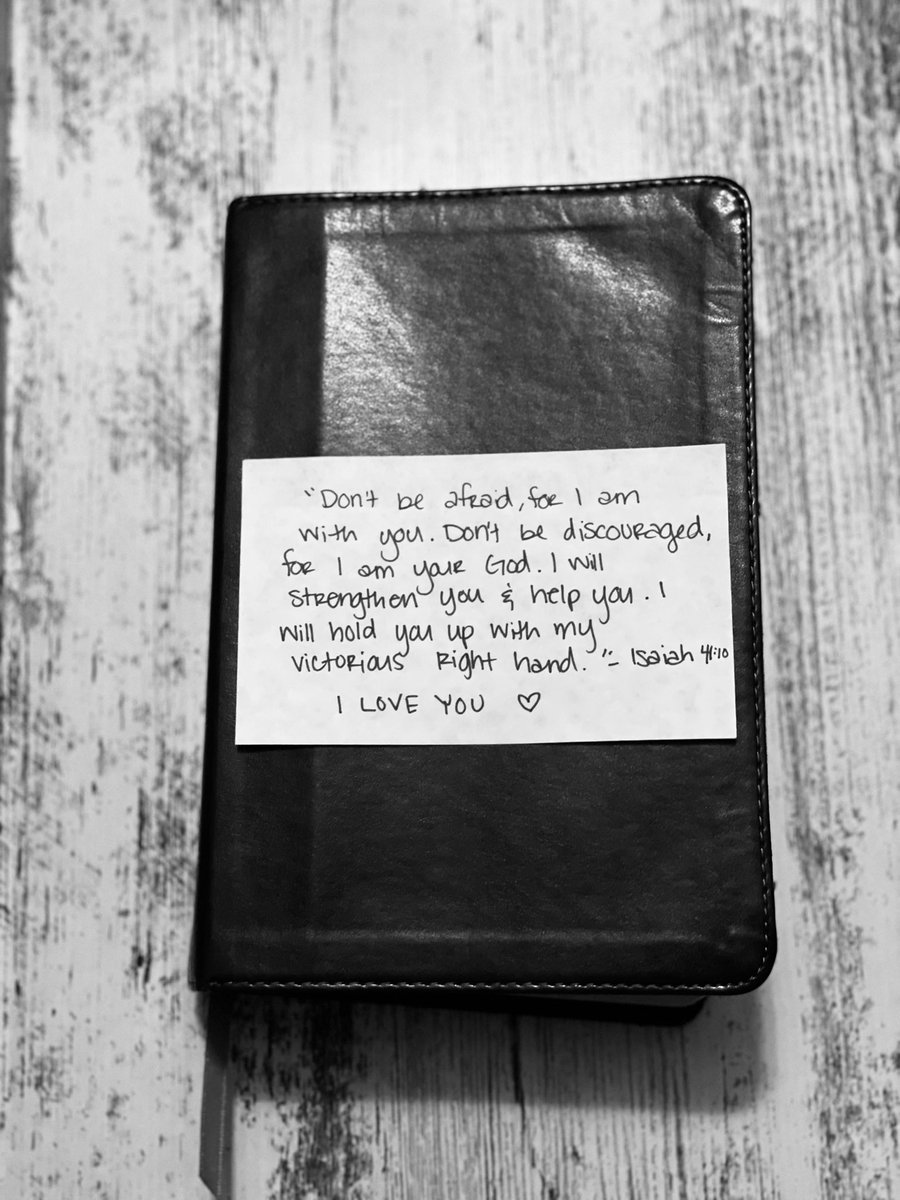 "Don't be afraid, for I am
with you. Don't be discouraged,
for I am your God. I will
strengthen you & help you. I
will hold you up with my
victorious right hand."- Isaiah 41:10
I LOVE YOU ♡